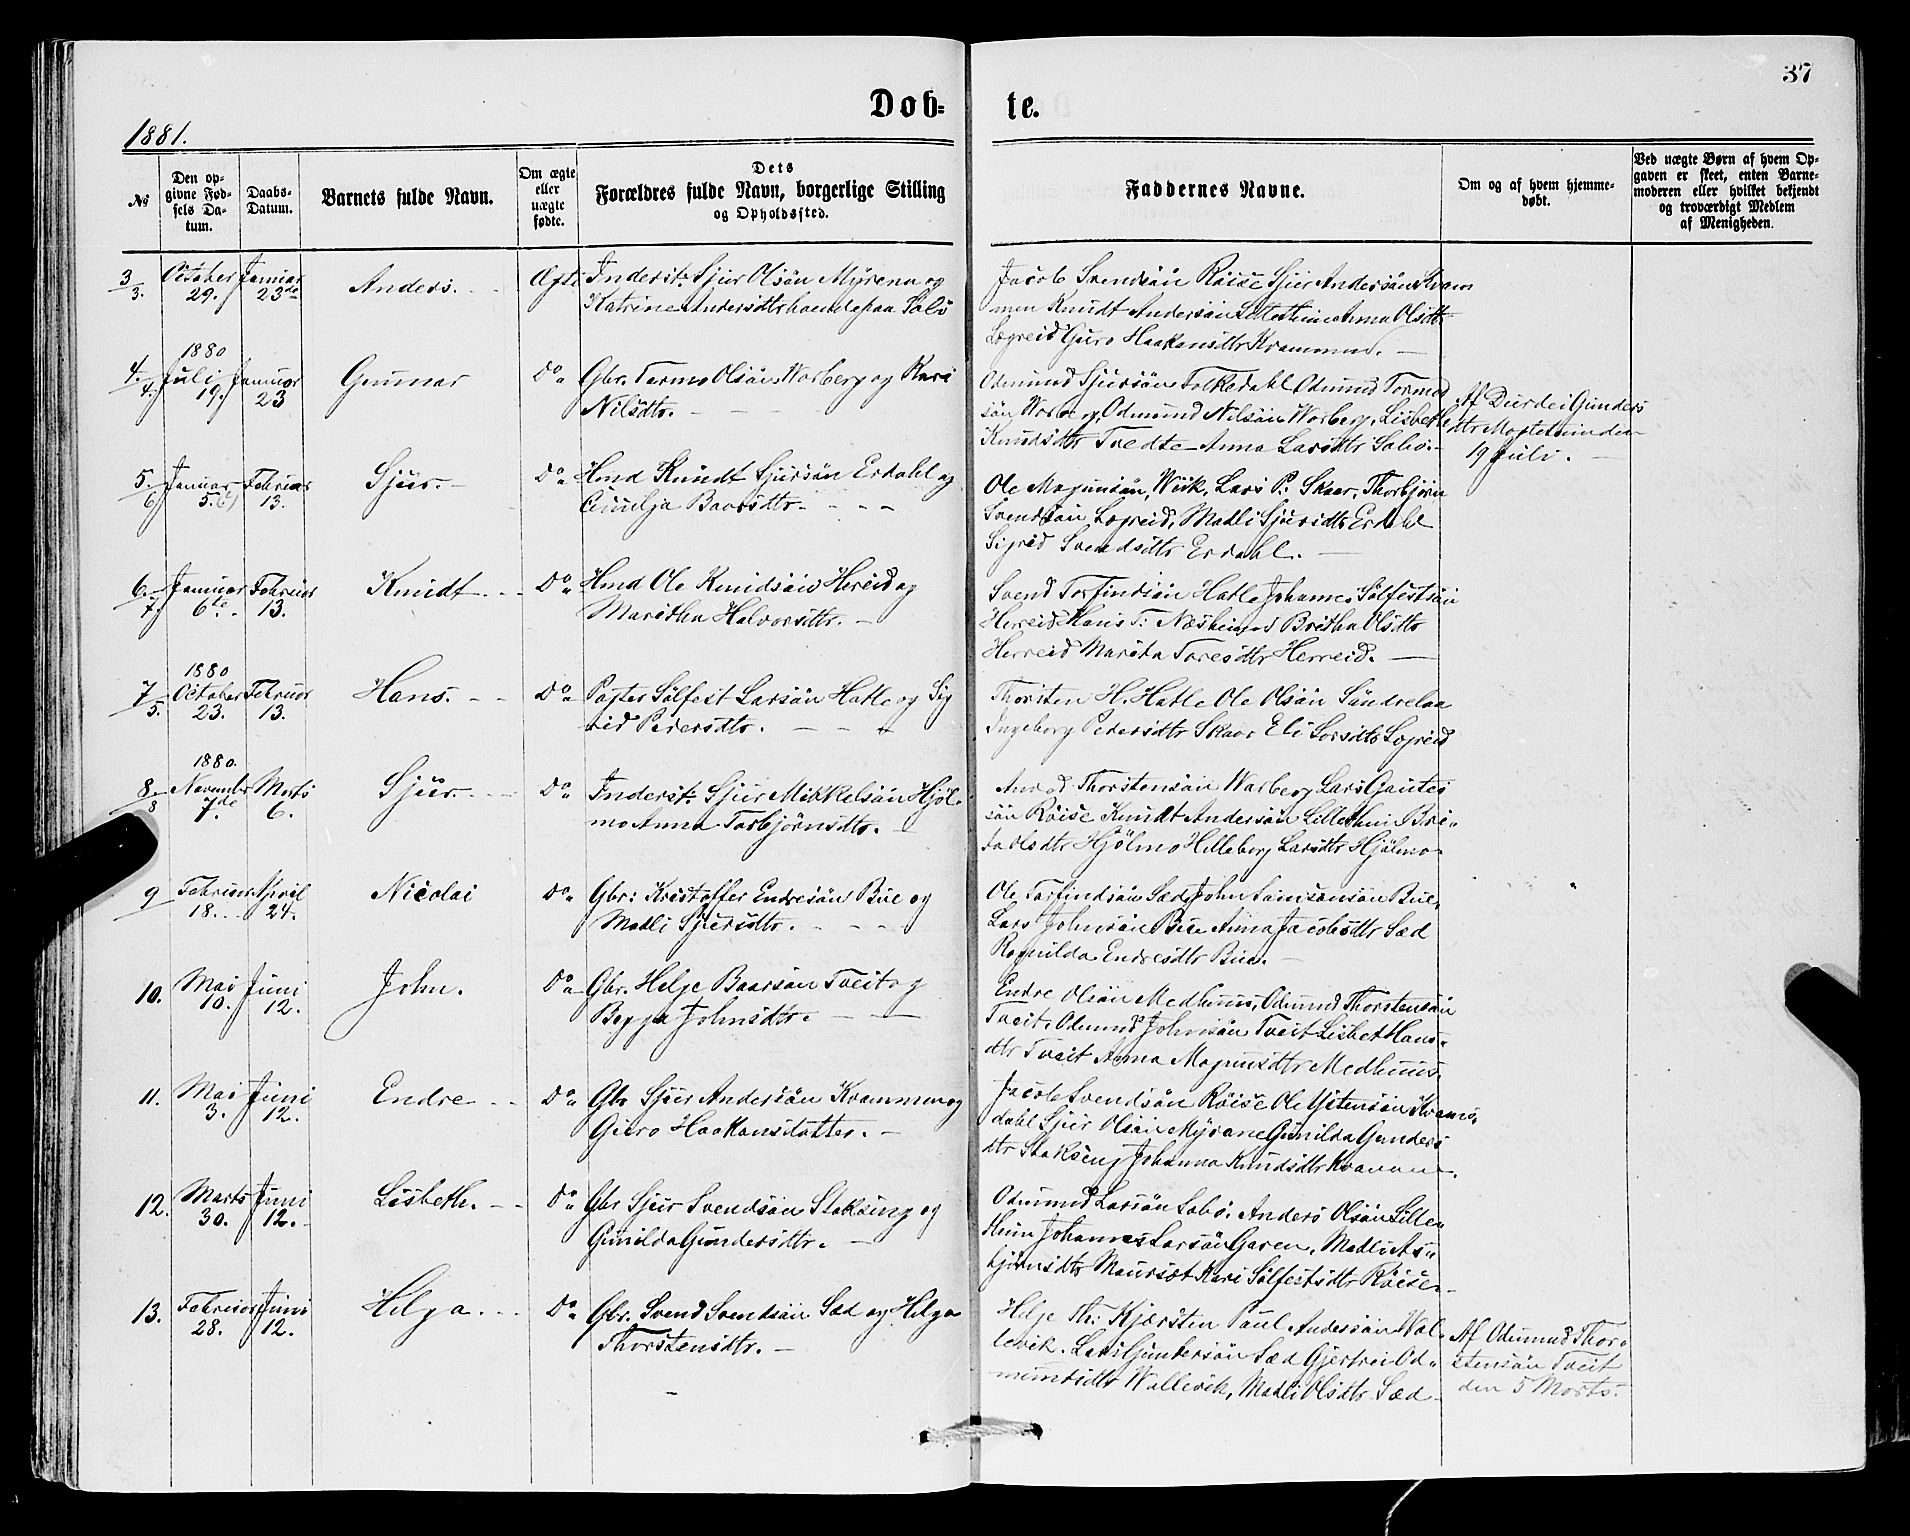 37
Døb-
te.
1881.
№
Den op-
givne Fød-
sels Da-
tum.
Daabs-
Datum.
Barnets fulde Navn.
Om ægte
eller
uægte
fødte.
Dets
Forældres fulde Navn, borgerlige Stilling
og Opholdssted.
Faddernes Navne.
Om og af hvem hjemme-
døbt.
Ved uægte Børn af hvem Op-
gaven er skeet, enten Barne-
moderen eller hvilket bekjendt
og troværdigt Medlem
af Menigheden.
3/3. October 29. Januar 23de Anders. Ægte
Inderst. Sjur Olsön Myrene og
Katrine Andersdtr
Jacob Svendsön Röise Sjur Andersön Kvam
men Knudt Andersön Lillethun Anna Olsdtr
Lægreid Guro Haakansdtr Krammen.
4/4. 1880 Juli 19. Januar 23 Gunnar Do
Gbr. Tormo Olsön Warberg og Kari
Nilsdtr.
Odmund Sjursön Folkedahl Odmund Tormod
sön Warberg, Odmund Nilsön Warberg, Lisbethe
Knudsdtr Tvedte Anna Larsdtr Sabö.
Af Durdei Gunders
dtr den
19 Juli.
5/6 Januar 5. Februar 13. Sjur. Do
Hmd Knudt Sjursön Erdahl og
Baarsdtr.
Ole Magnusön, Wiik, Lars P. Skaar, Thorbjörn
Svendsön Lægreid, Madli Sjursdtr Erdahl
Sigrid Svendsdtr Erdahl.
6./7. Januar 6te. Februar 13. Knudt. Do
Hmd Ole Knudsön Hereid og
Maritha Halvorsdtr.
Svend Torfindsön Hatle Johannes Sölfestsön
Herreid Hans T. Næsheimd Britha Olsdtr
Herreid Marita Toresdtr Herreid.
7/5. 1880 October 23. Februar 13. Hans. Do
Sölfest Larsön Hatle og Sig
rid Pedersdtr.
Thorsten H. Hatle Ole Olsön Söndrelaa
Ingeborg Pedersdtr Skaar Eli Larsdtr Lægreid
8./8 1880. November 7de Marts 6. Sjur. Do
Inderst. Sjur Mikkelsön Hjöl-
mo Anna Torbjörnsdtr.
Thorstensön Warberg Lars Gautes
sön Röise Knudt Andersön Lillethun Bri-
ta Olsdtr Hjölmo Helleborg Larsdtr Hjölmo
9 Februar 18. April 24. Nicolai Do
Gbr: Kristoffer Endresön Bue og
Madli Sjursdtr.
Ole Torfindsön Sæd John Samsonsön Bue,
Lars Johnsön Bue Anna Jacobsdtr Sæd
Ragnilda Endresdtr Bue.
10. Mai 10. Juni 12. John. Do
Gbr. Helje Baarsön Tveit og
Begga Johnsdtr.
Endre Olsön Medhuus, Odmund Thorstensön
Tveit, Odmund Johnsön Tveit Lisbet Hans-
dtr Tveit Anna Magnusdtr Medhuus.
11. Mai 3. Juni 12. Endre Do
Gbr Sjur Andersön Krammen og
Guro Haakansdatter.
Jacob Svendsön Röise Ole Ystensön Kvams-
dahl Sjur Olsön Myrane Gunilda Gunders
dtr Stakseng Johanna Knudsdtr
12. Marts 30. Juni 12. Lisbeth. Do
Gbr Sjur Svendsön Staksung og
Gunilda Gundersdtr.
Odmund Larsön Sabö. Anders Olsön Lille-
thun Johannes Larsön Garen, Madli As-
björnsdtr Maursæt Kari Sölfestsdtr Röise.
13. Februar 28. Juni 12. Helga. Do
Gbr. Svend Svendsön Sæd og Helga
Thorstensdtr.
Helje Th. Kjærsten Paul Andersön Wal-
levik. Lars Gundersön Sæd Gjertrei Od-
mundsdtr Wallevik, Madli Olsdtr Sæd
Af Odmund Thor-
stensön Tveit
den 5 Marts.